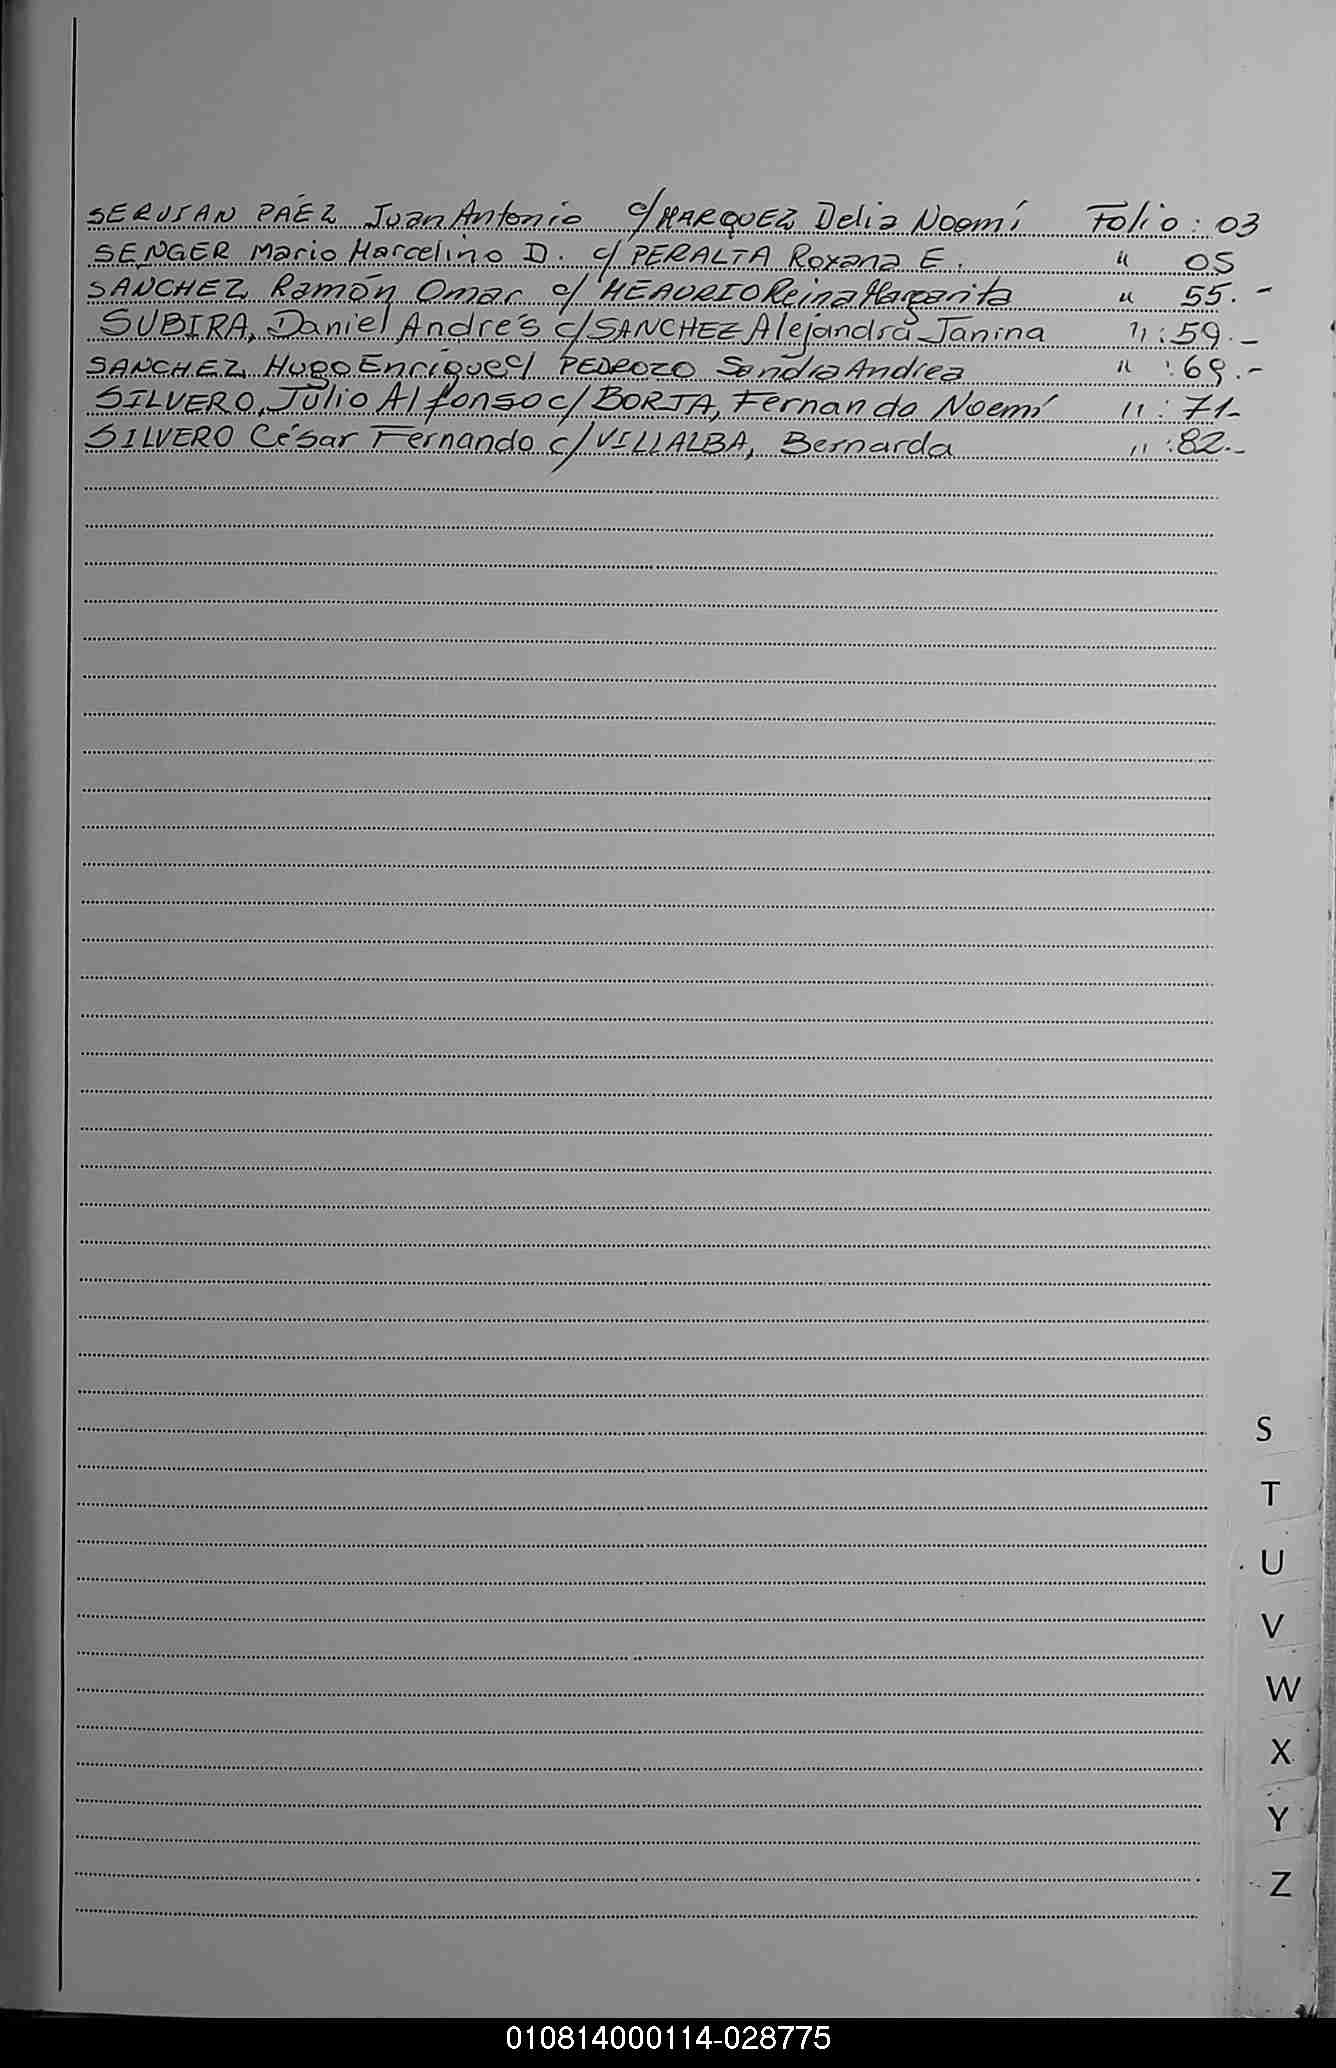 SERVIAN PAÉZ Juan Antonio c/ MARQUEZ Delia Noemí Folio: 03
SENGER Mario Marcelino D. c/ PERALTA Roxana E. " 05
SANCHEZ Ramón Omar c/ MEAURIO Reina Margarita " 55.-
SUBIRA, Daniel Andrés c/ SANCHEZ Alejandra Janina ":59.-
SANCHEZ Hugo Enrique c/ PEDROZO Sandra Andrea ":69.-
SILVERO, Julio Alfonso c/ BORJA, Fernando Noemí ": 71-
SILVERO César Fernando c/ VILLALBA, Bernarda ":82.-
S
T
U
V
W
X
Y
Z
010814000114-028775